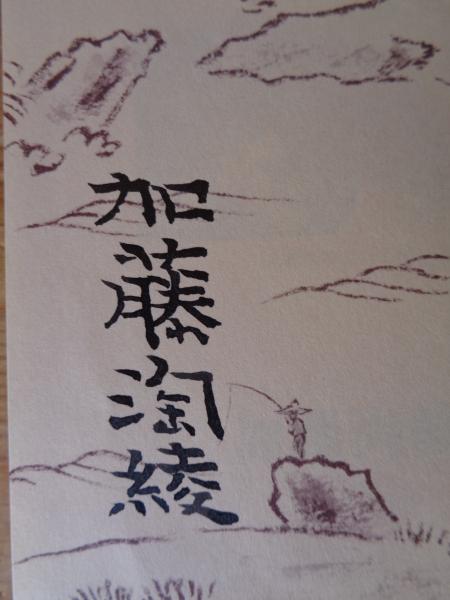 加藤淘綾